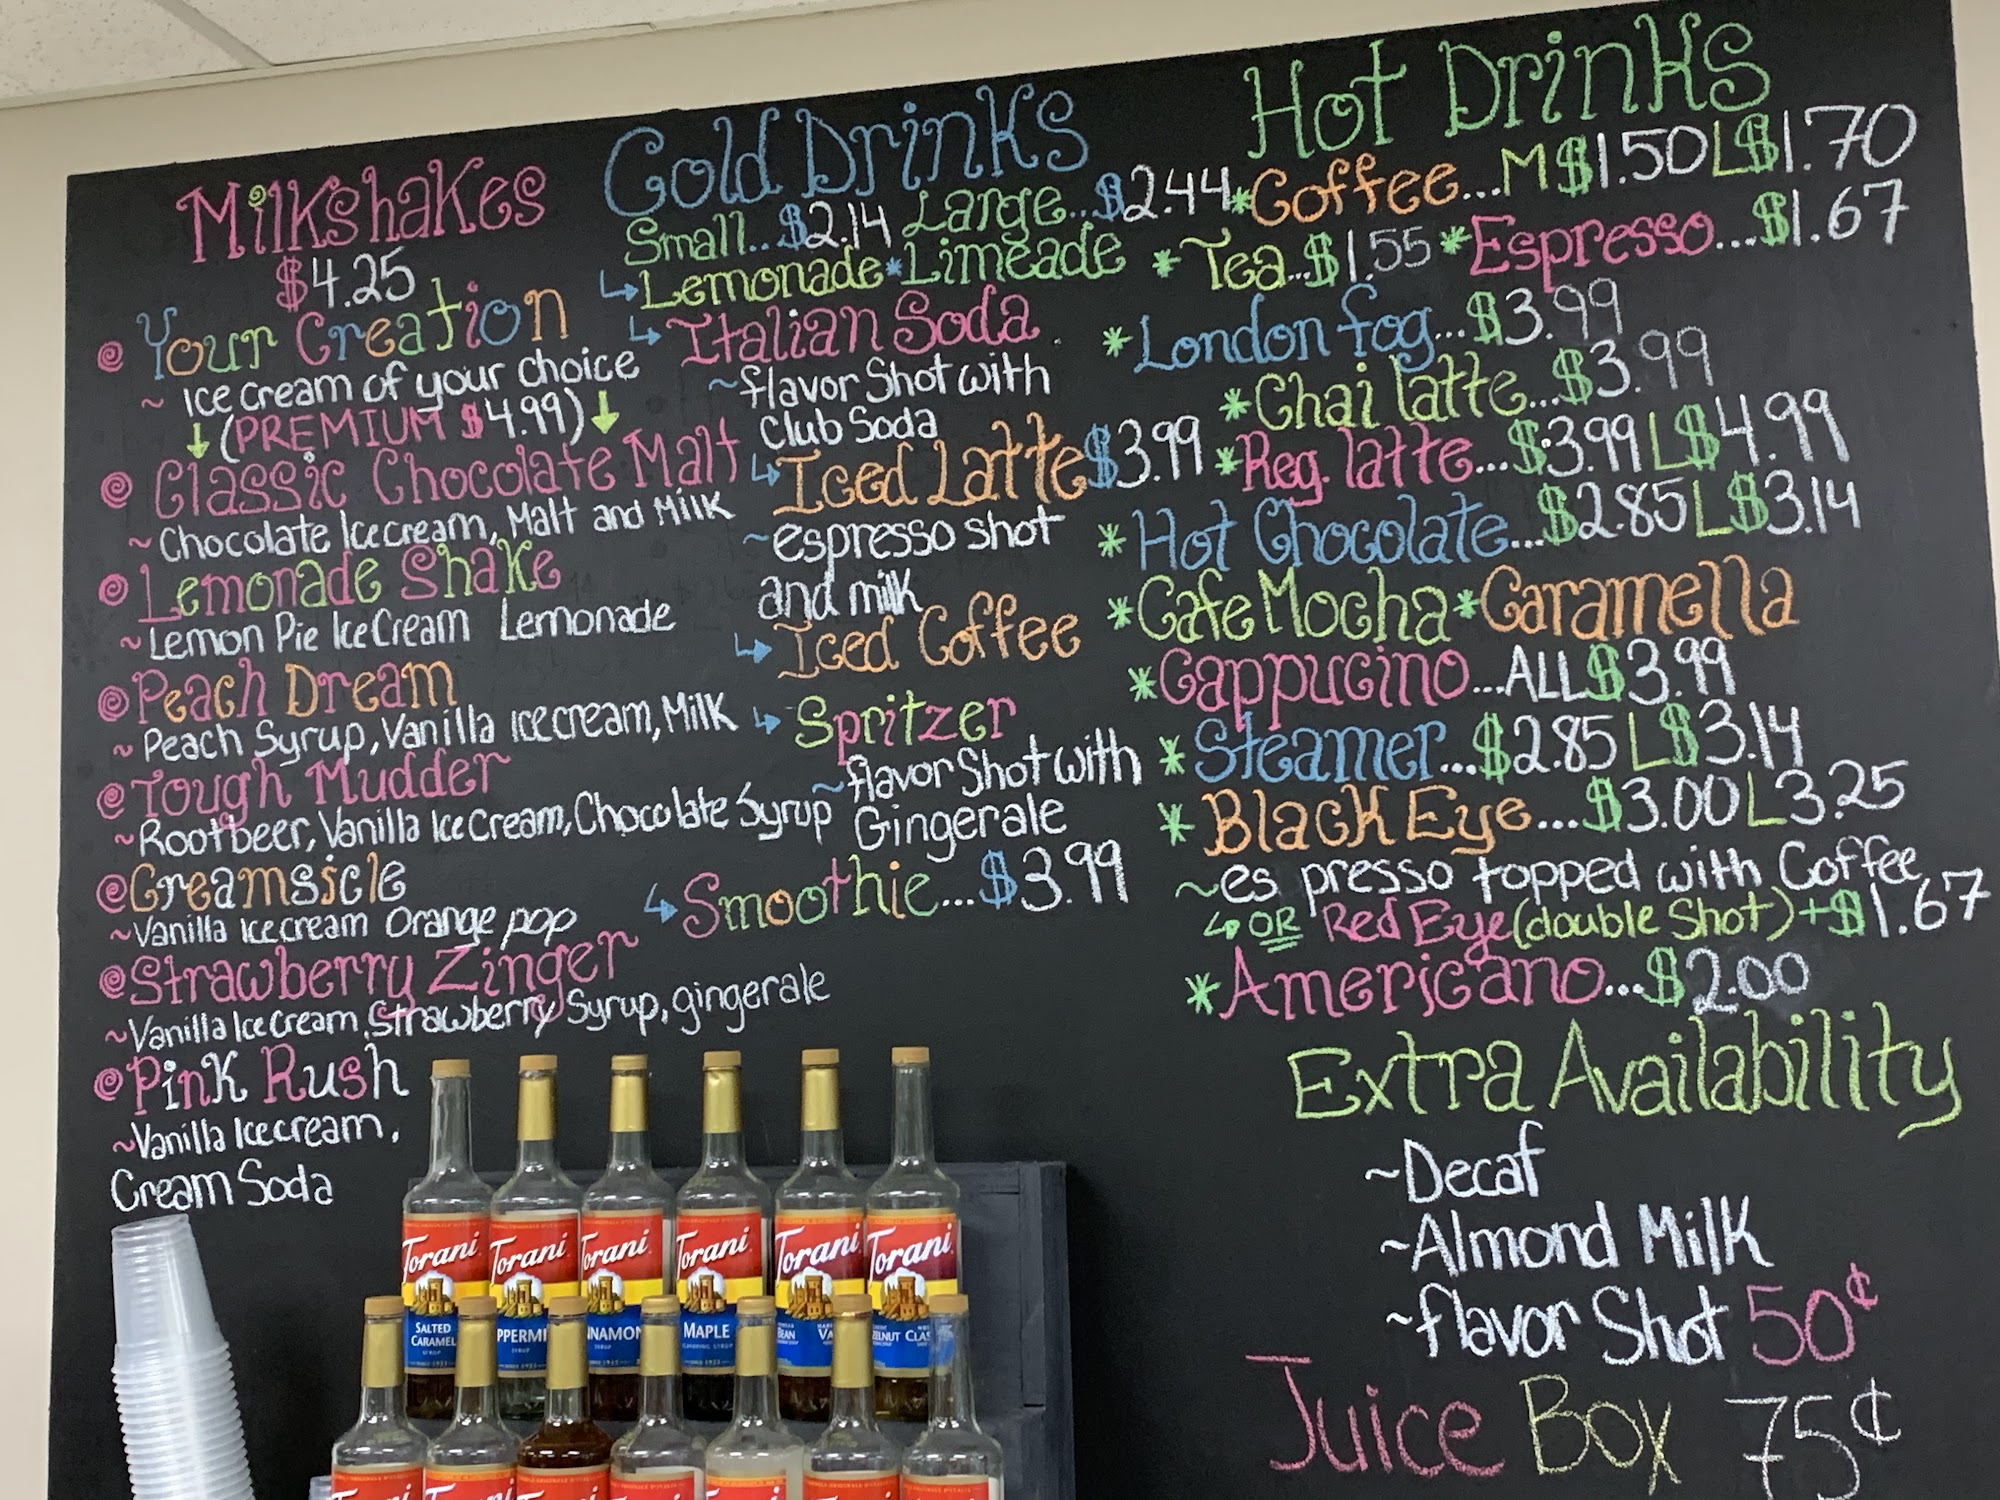 Milkshakes
$4.25
Your Creation
~ Ice cream of your choice
(PREMIUM $4.99)
Classic Chocolate Malt
~ Chocolate Ice cream, Malt and Milk
Lemonade Shake
~ Lemon Pie Ice Cream Lemonade
Peach Dream
~ Peach Syrup, Vanilla Ice cream, Milk
Tough Mudder
~ Rootbeer, Vanilla Ice Cream, Chocolate Syrup
Creamsicle
~ Vanilla Ice cream Orange pop
Strawberry Zinger
~ Vanilla Ice Cream, Strawberry Syrup, gingerale
Pink Rush
~ Vanilla Ice cream,
Cream Soda
Cold Drinks
Small.. $2.14 Large... $2.44
Lemonade * Limeade
Italian Soda
~ flavor Shot with
Club Soda
Iced Latte $3.99
~ espresso shot
and milk
Iced Coffee
Spritzer
~ flavor Shot with
Gingerale
Smoothie... $3.99
Hot Drinks
* Coffee... M $1.50 L $1.70
* Tea... $1.55 * Espresso... $1.67
* London fog... $3.99
* Chai latte... $3.99
* Reg. latte... $3.99 L $4.99
* Hot Chocolate... $2.85 L $3.14
* Cafe Mocha * Caramella
* Cappucino... ALL $3.99
* Steamer... $2.85 L $3.14
* Black Eye... $3.00 L 3.25
~ espresso topped with Coffee
OR Red Eye (double Shot) + $1.67
* Americano... $2.00
Extra Availability
~ Decaf
~ Almond Milk
~ flavor Shot 50¢
Juice Box 75¢
Torani Torani Torani Torani Torani Torani
SALTED
CARAMEL
SYRUP
PPERMI
NNAMON
MAPLE
BEAN
VA
ZELNUT
CLAS
Torani Torani Torani